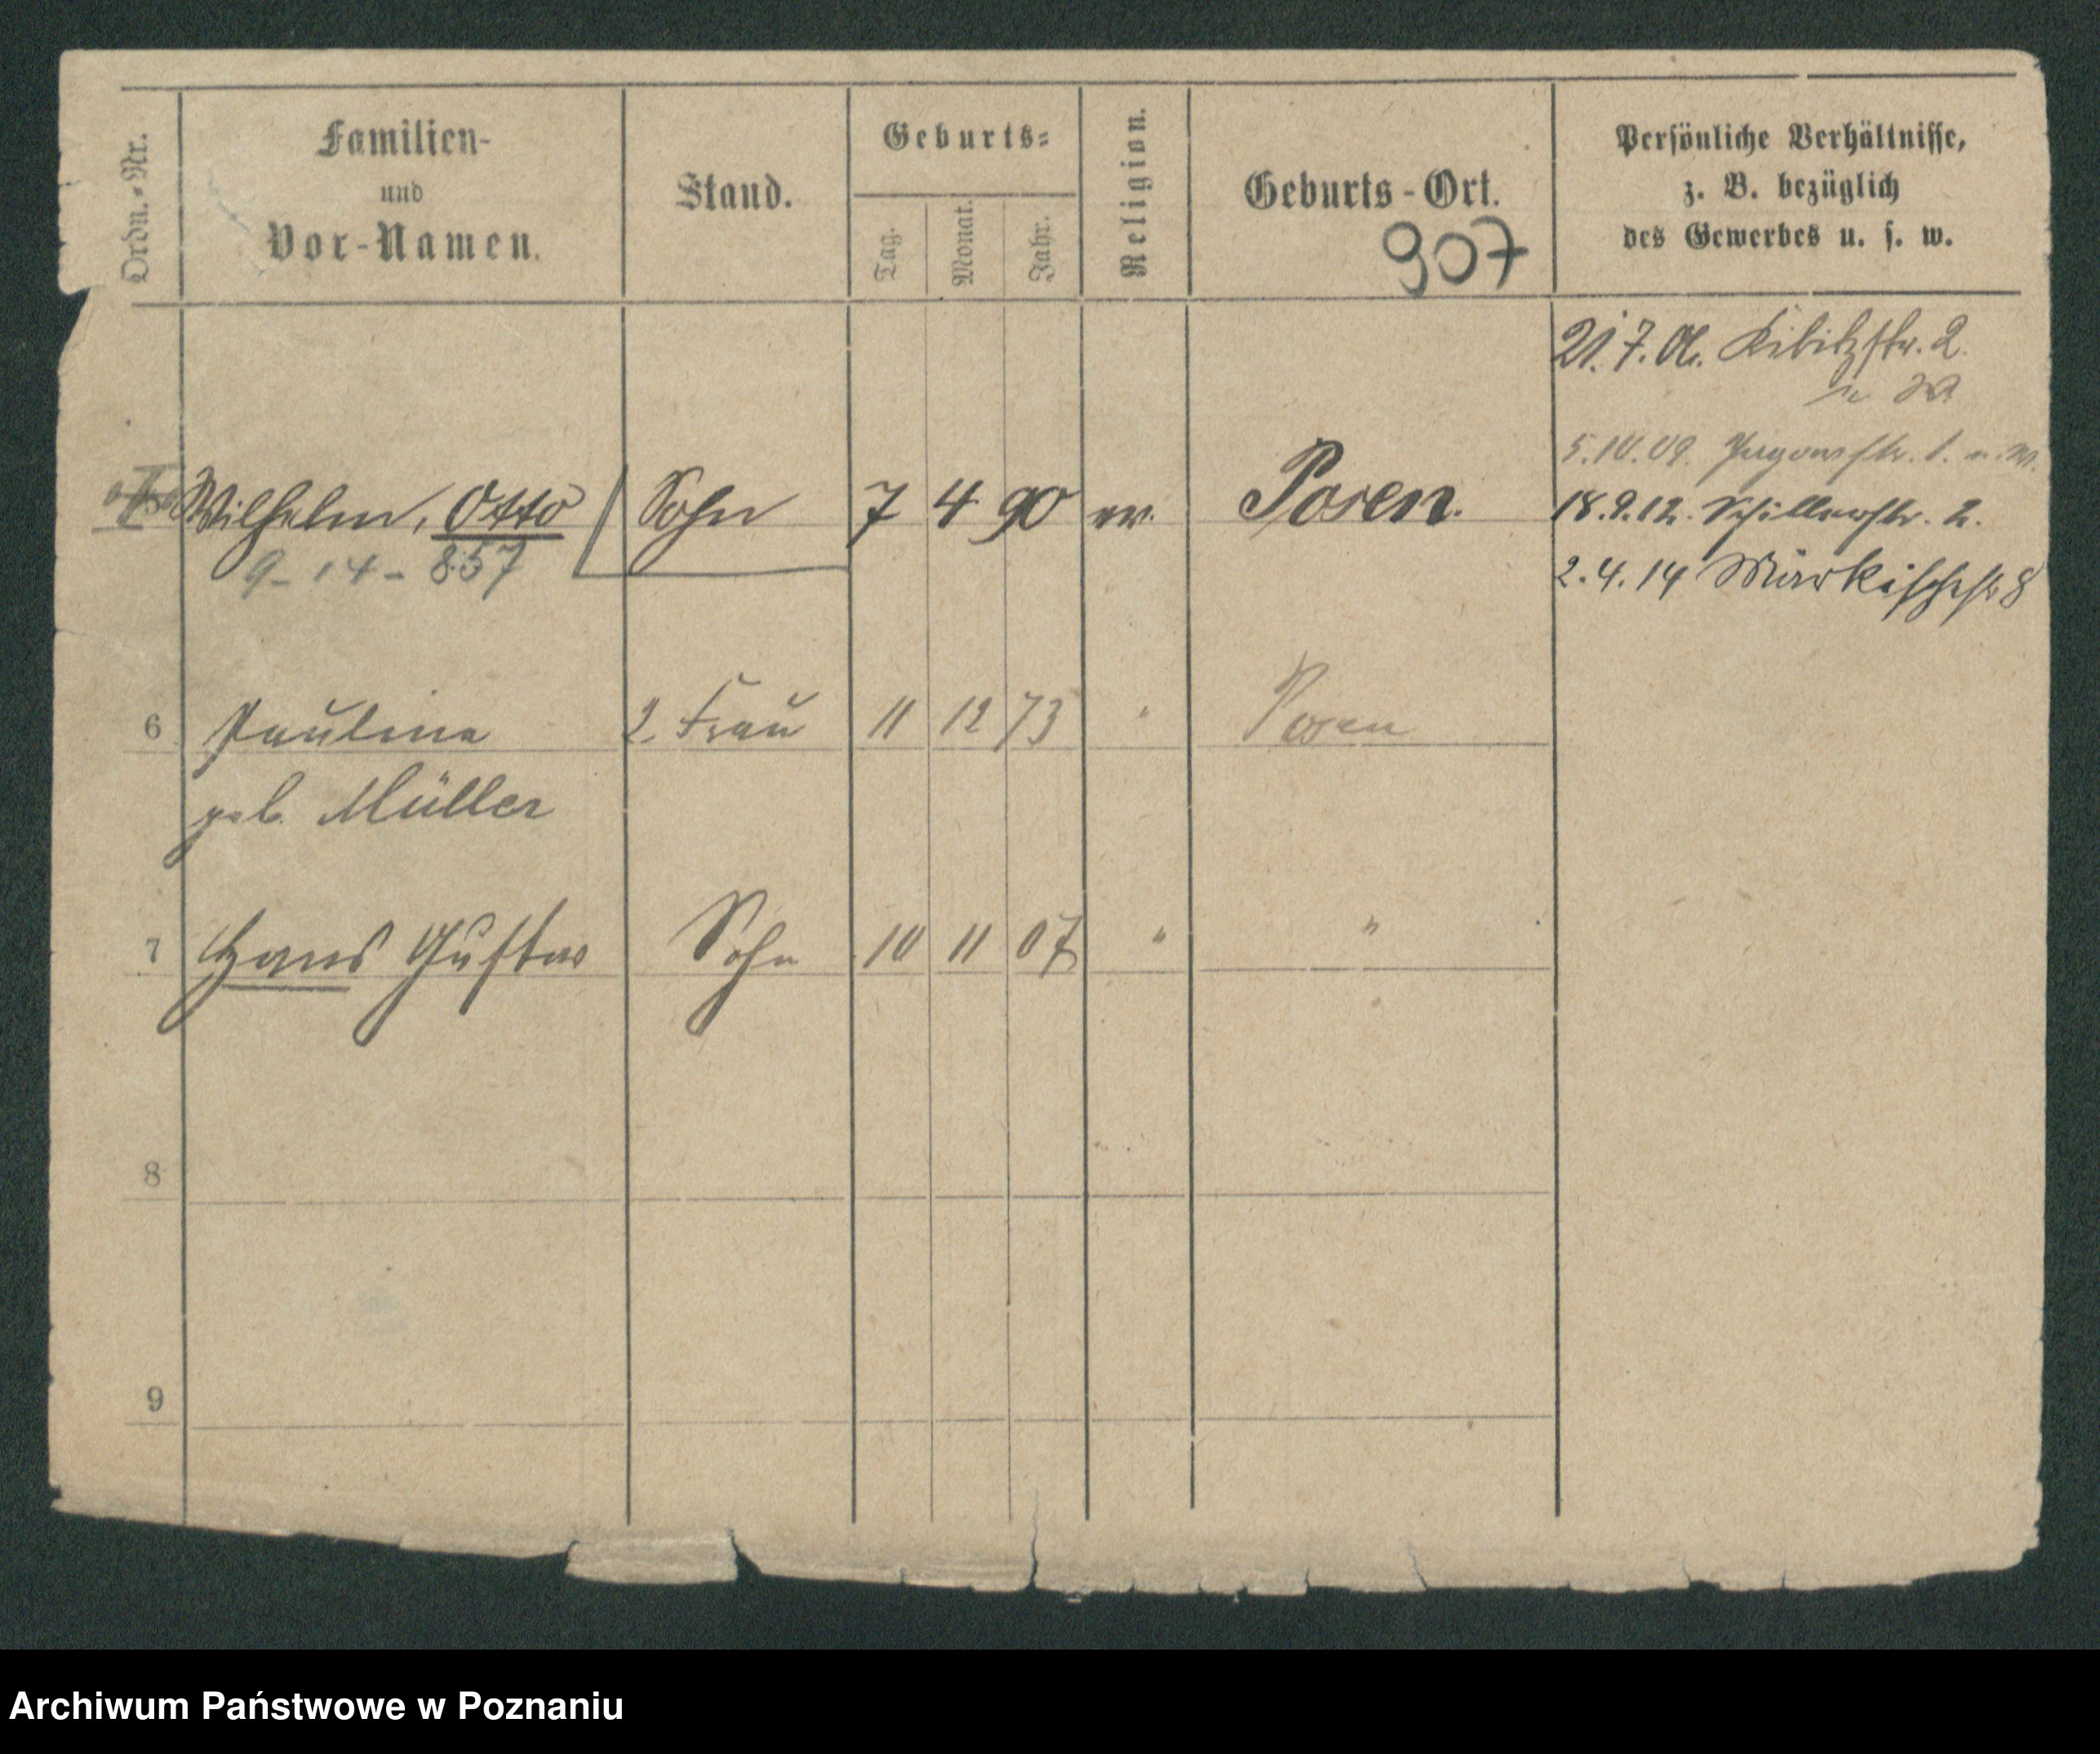 Ordn.-Nr.
Familien-
und
Vor-Namen.
Stand.
Geburts-
Tag.
Monat.
Jahr.
Religion.
Geburts-Ort.
907
Persönliche Verhältnisse,
z. B. bezüglich
des Gewerbes u. s. w.
21.7.06. Kibitzstr. 2.
5.10.09. Jagowstr. 1. n. W.
Wilhelm, Otto Sohn 7 4 90 ev. Posen. 18.9.12. Schillerstr. 2.
9-14-857
2.4.14 Märkischestr 8
6 Pauline 2. Frau 11 12 73 " Posen
geb. Müller
7 Hans Gustav Sohn 10 11 07 " "
8
9
Archiwum Państwowe w Poznaniu